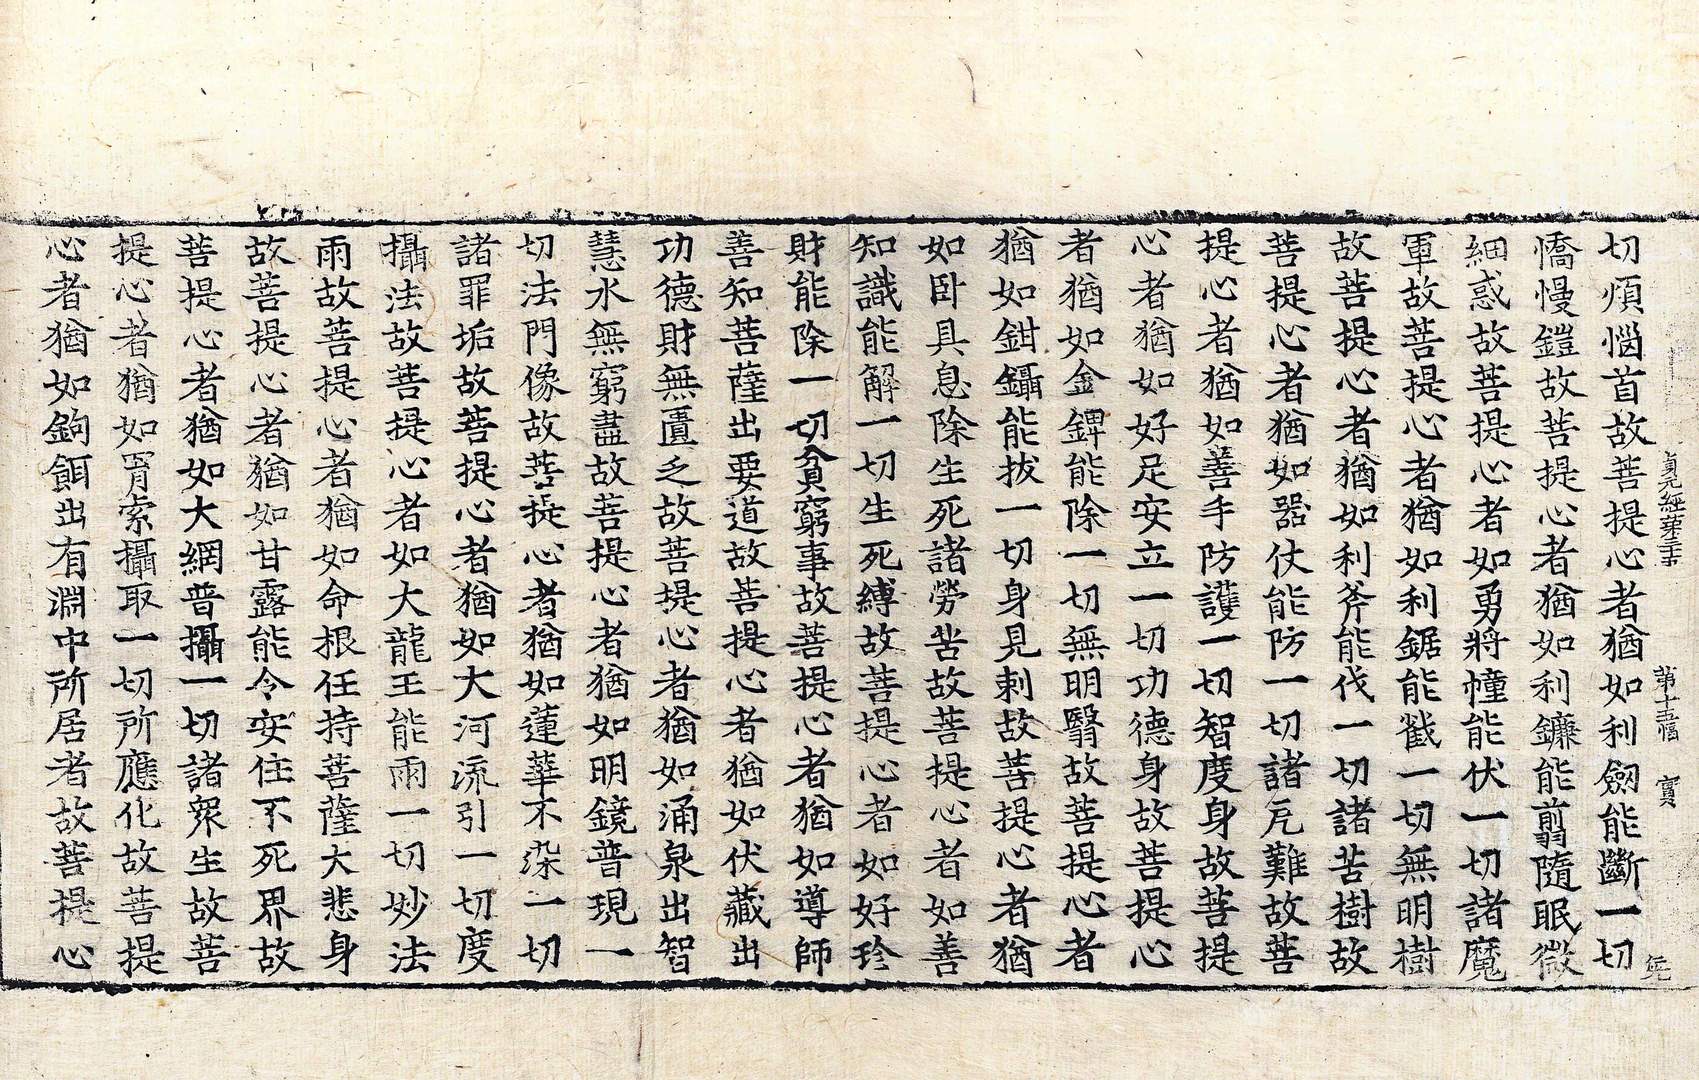 貞元經第三十 第十五幅 寶
切煩惱首故菩提心者猶如利劒能斷一切
憍慢鎧故菩提心者猶如利鐮能翦隨眠微
細惑故菩提心者如勇將幢能伏一切諸魔
軍故菩提心者猶如利鋸能截一切無明樹
故菩提心者猶如利斧能伐一切諸苦樹故
菩提心者猶如器仗能防一切諸厄難故菩
提心者猶如善手防護一切智度身故菩提
心者猶如好足安立一切功德身故菩提心
者猶如金錍能除一切無明翳故菩提心者
猶如鉗鑷能拔一切身見刺故菩提心者猶
如卧具息除生死諸勞苦故菩提心者如善
知識能解一切生死縛故菩提心者如好珍
財能除一切貧窮事故菩提心者猶如導師
善知菩薩出要道故菩提心者猶如伏藏出
功德財無匱乏故菩提心者猶如涌泉出智
慧水無窮盡故菩提心者猶如明鏡普現一
切法門像故菩提心者猶如蓮華不染一切
諸罪垢故菩提心者猶如大河流引一切度
攝法故菩提心者如大龍王能雨一切妙法
雨故菩提心者猶如命根任持菩薩大悲身
故菩提心者猶如甘露能令安住不死界故
菩提心者猶如大網普攝一切諸衆生故菩
提心者猶如罥索攝取一切所應化故菩提
心者猶如鉤餌出有淵中所居者故菩提心